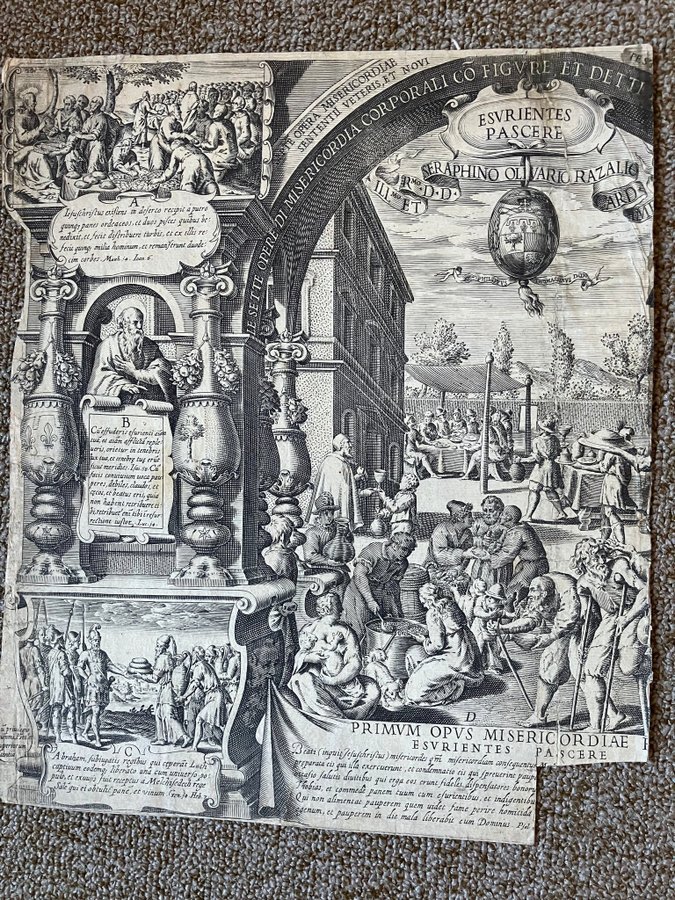 TE OPERA MISERICORDIAE
SENTENTII VETERIS, ET NOVI
LI SETTE OPERE DI MISERICORDIA CORPORALI CÕ FIGVRE ET DETTI
ESVRIENTES
PASCERE
SERAPHINO OLIVARIO RAZALIO
ILL.mo ET R.mo D. D.
CARD
A
Iesuschristus existens in deserto recepit a puero
quinq; panes ordeaceos, et duos pisces quibus be
nedixit, et fecit distribuere turbis, et ex illis re
fecit quinq; milia hominum, et remanserunt duode
cim corbes. Math. 14. Ioan. 6.
B
Cũ effuderis esurienti aĩam
tuã, et aĩam afflictã reple
ueris, orietur in tenebris
lux tua, et tenebrę tuę erũt
sicut meridies. Isa. 58. Cũ
facis conuiuium uoca pau
peres, debiles, claudos, et
cęcos, et beatus eris, quia
non habent retribuere ti
bi. retribuet.r eni tibi i resu-
rectione iustor. Luc. 14.
C
Abraham, subiugatis regibus qui ceperãt Loth
captiuum eodemq; liberato una cum uniuerso po
pulo, et exuuijs fuit receptus a Melchisedech rege
Salẽ qui et obtulit panẽ, et vinum Gen. 14. Heb.
D
PRIMVM OPVS MISERICORDIAE
ESVRIENTES PASCERE
Beati (inquit Iesuschristus) misericordes qm̃ misericordiam consequentur
preparata eis qui illa exercuerunt, et condemnatis eis qui spreuerint
salutis diuitibus qui erga eos erunt fideles dispensatores bonorũ
Thobias, et commede panem tuum cum esurientibus, et indigentibus
Qui non alimentat pauperem quem uidet fame perire homicida
egenum, et pauperem in die mala liberabit eum Dominus Psal